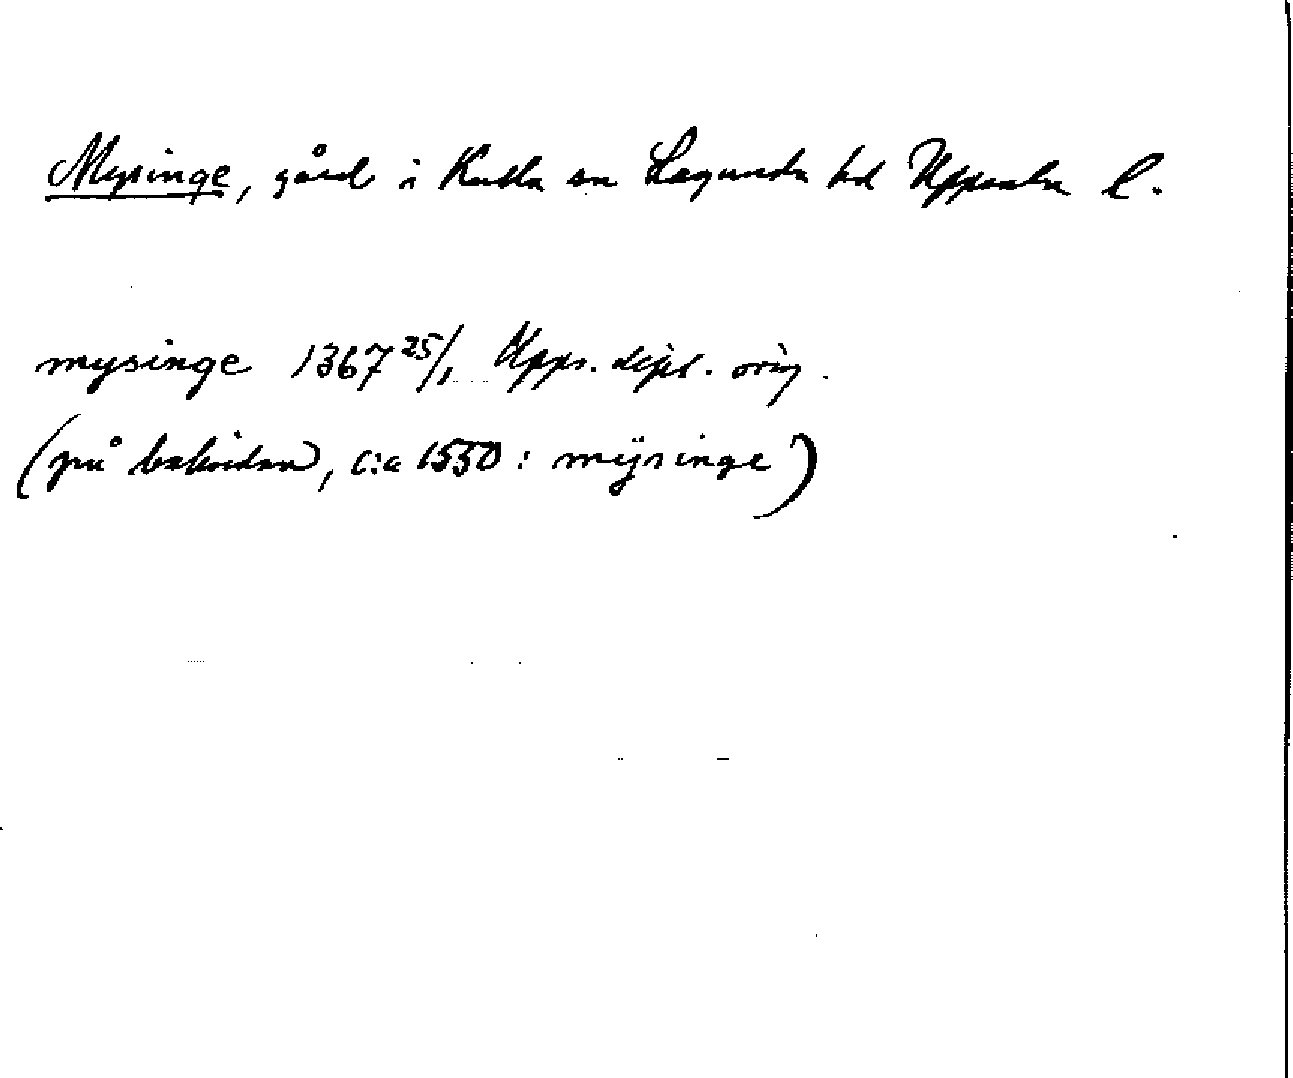 Mysinge, gård i Kulla sn Lagunda hd Uppsala l.
mysinge 1367 25/1 Upps. dipl. orig.
(på baksidan, c:a 1550: mÿsinge)